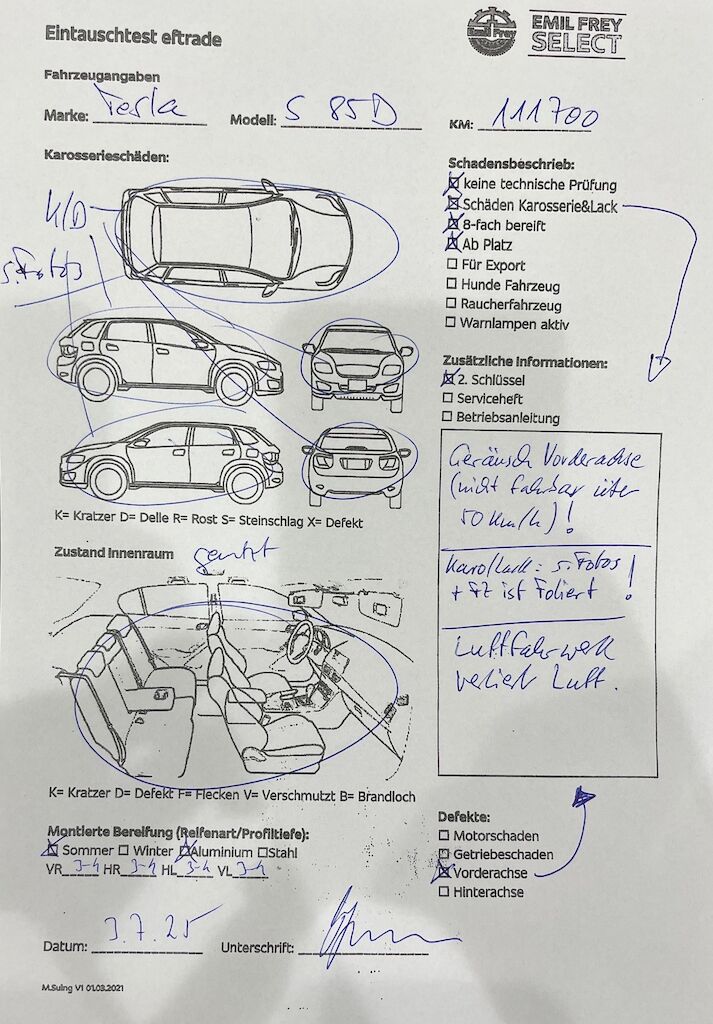 Eintauschtest eftrade
Emil Frey
EMIL FREY
SELECT
Fahrzeugangaben
Marke: Tesla Modell: S 85D KM: 111700
Karosserieschäden:
K/D
s. Fotos
Schadensbeschrieb:
keine technische Prüfung
Schäden Karosserie&Lack
8-fach bereift
Ab Platz
Für Export
Hunde Fahrzeug
Raucherfahrzeug
Warnlampen aktiv
Zusätzliche Informationen:
2. Schlüssel
Serviceheft
Betriebsanleitung
Geräusch Vorderachse
(nicht fahrbar über
50 km/h)!
Karo/Lack: s. Fotos
+ FZ ist Foliert !
Luftfahrwerk
verliert Luft.
K= Kratzer D= Delle R= Rost S= Steinschlag X= Defekt
Zustand Innenraum
K= Kratzer D= Defekt F= Flecken V= Verschmutzt B= Brandloch
Montierte Bereifung (Reifenart/Profiltiefe):
Sommer Winter Aluminium Stahl
VR 3-4 HR 3-4 HL 3-4 VL 3-4
Defekte:
Motorschaden
Getriebeschaden
Vorderachse
Hinterachse
Datum: 3.7.25 Unterschrift:
M.Suing V1 01.03.2021